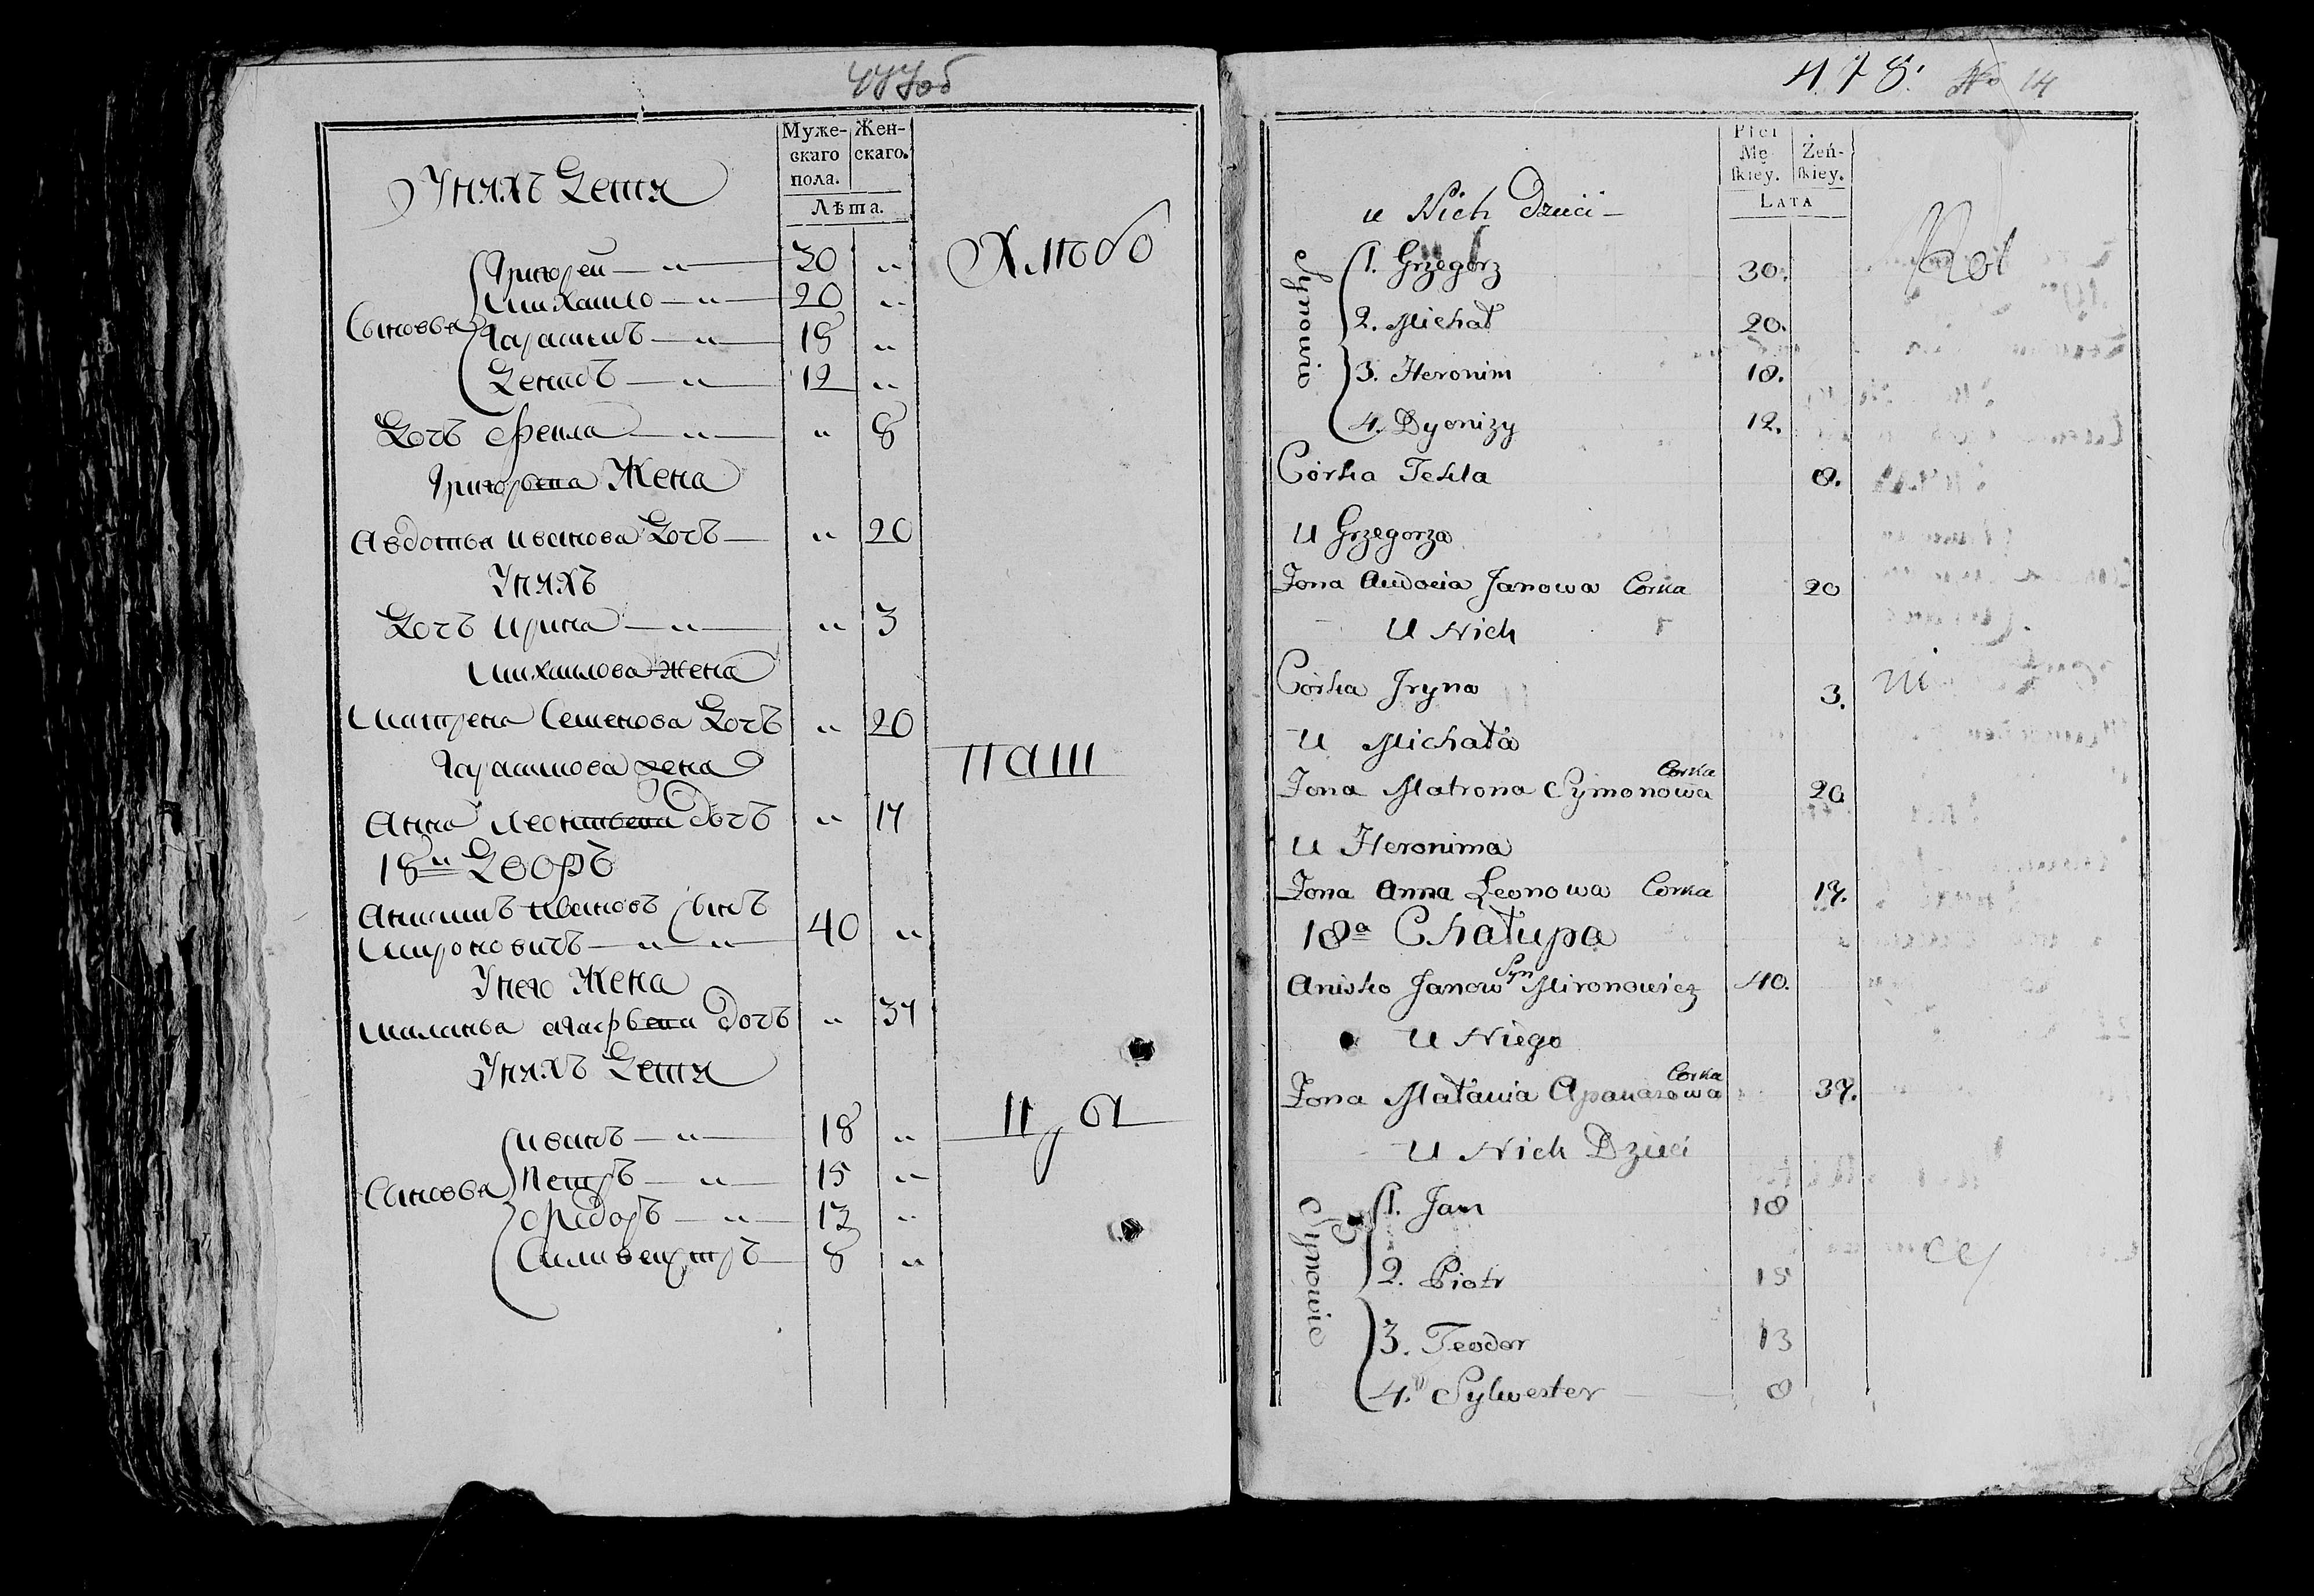 477об
Муже- Жен-
скаго скаго.
пола.
Лѣта.
У нихъ Дети
Хлѣбо
Григорей 30 "
Михайло 20 "
Сыновья
Гарасимъ 18 "
Денисъ 12 "
Дочь Фекла " 8
Григорьева Жена
Авдотья Иванова Дочь " 20
У нихъ
Дочь Ирина " 3
Михайлова жена
Матрена Семенова Дочь " 20
Гарасимова жена
паш
Анна Леонтьева дочь " 17
18й Дворъ
Анисимъ Ивановъ сынъ
Мироновичъ 40 "
У него Жена
Маланья дочь " 37
У нихъ Дети
Иванъ 18 "
цы
Петръ 15 "
Сыновья
Федоръ 13 "
Силивестръ 8 "
478. No 14
Płci
Mę- Żeń-
ſkiey. ſkiey.
LATA
u Nich Dzieci
Rol
Synowie
1. Grzegorz 30.
2. Michał 20.
3. Heronim 18.
4. Dyonizy 12.
Córka Tekla 8.
U Grzegorza
Zona Audocia Janowa Corka 20
U Nich
Córka Jryna 3.
ni
U Michała
Zona Matrona Symonowa Corka 20
U Heronima
Zona Anna Leonowa Corka 17.
18a Chałupa
Anisko Janow Syn Mironowicz 40.
U Niego
Zona Małania Apanasowa Corka 37.
U Nich Dzieci
Synowie
1. Jan 18
cy
2. Piotr 15
3. Teodor 13
4. Sylwester 8